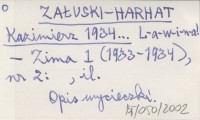 ZAŁUSKI-HARHAT
Kazimierz 1934... L-a-w-i-n-a!
– Zima 1 (1933-1934),
nr 2: , il.
Opis wycieczki.
/050/2002